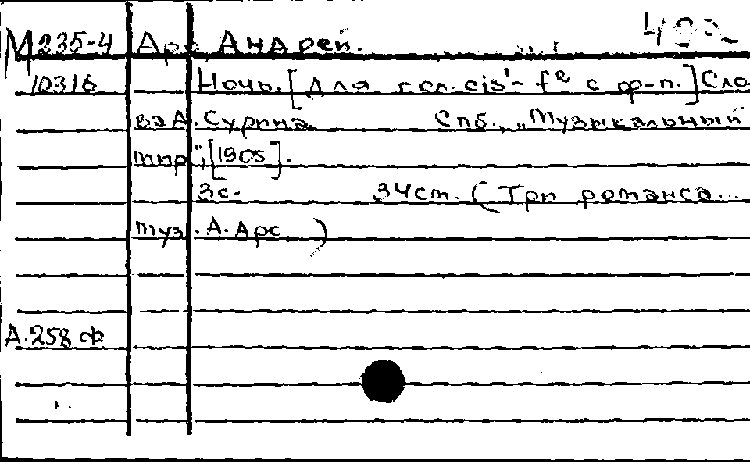 М 235-4 Арс, Андрей.
10316 Ночь. [Для гол. cis¹- f² с ф-п.] Сло
ва А. Сурина Спб., „Музыкальный
мир", [1905].
3с. 34 см. (Три романса...
муз. А. Арс )
А.258 ф